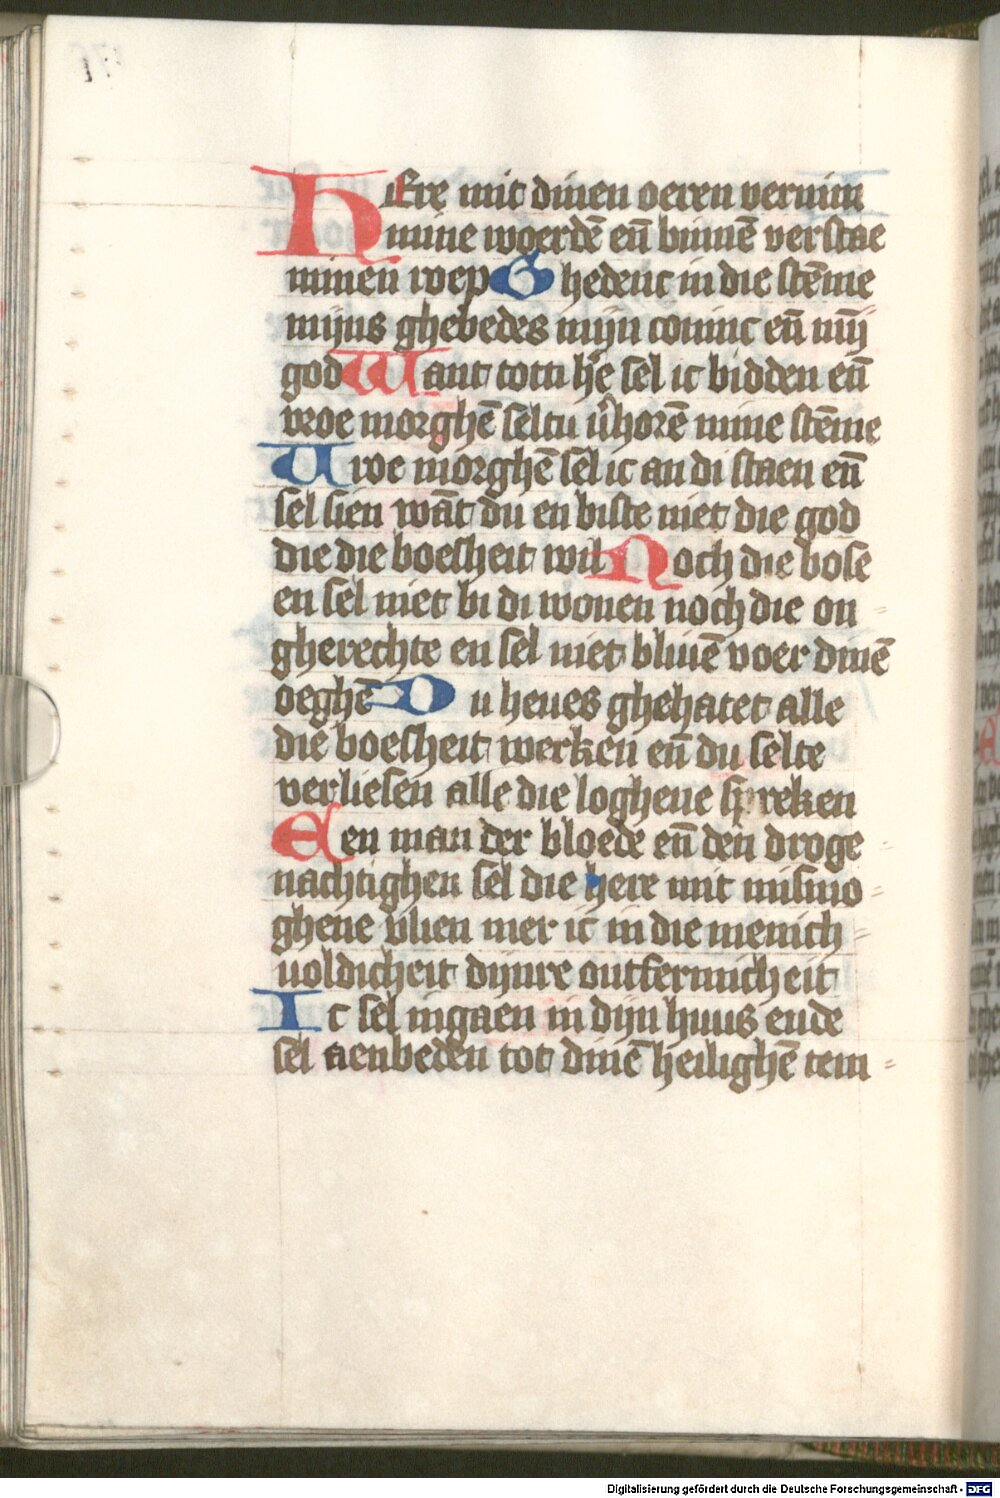 HEre mit dinen oeren vernim
mine woerdē en̄ binnē verstae
minen roep Ghedenc in die stēme
mijns ghebedes mijn coninc en̄ mijn
god Want toti h̄e sel ic bidden en̄
vroe morghē seltu v̄horē mine stēme
Uroe morghē sel ic an di staen en̄
sel sien wāt du en biste niet die god
die die boesheit wil Noch die bose
en sel niet bi di wonen noch die on
gherechte en sel niet bliuē voer dinē
oeghē Du heues ghehatet alle
die boesheit werken en̄ du selte
verliesen alle die loghene spreken
Een man der bloede en̄ den droge
nachtighen sel die here mit mismo
ghene v̄lien mer ic in die menich
uoldicheit dijnre ontfermicheit
Ic sel ingaen in dijn huus ende
sel aenbeden tot dinē heilighē tem
Digitalisierung gefördert durch die Deutsche Forschungsgemeinschaft - DFG